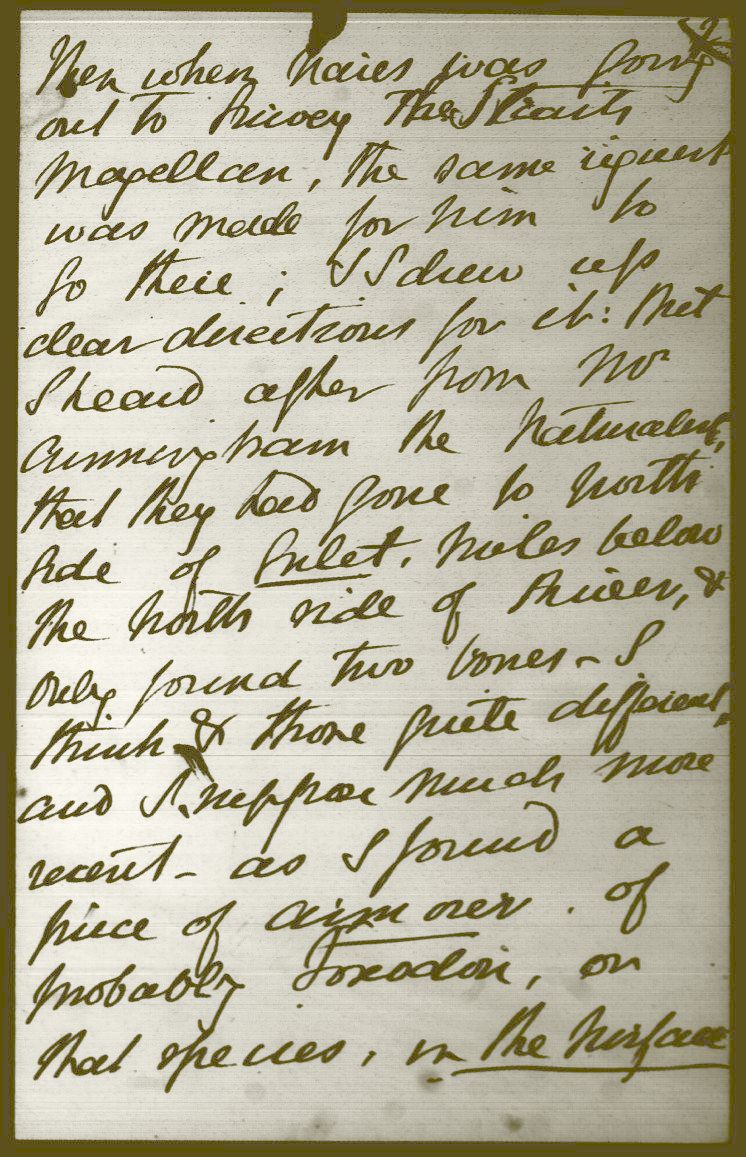 2
Then when Naires was going
out to Survey the Straits
Magellan, the same request
was made for him to
go there; & I drew up
clear directions for it: But
I heard after from Mr
Cunningham the Naturalist,
that they had gone to North
side of Inlet, miles below
the North side of River, &
only found two bones - I
think & those quite different,
and I suppose much more
recent - as I found a
piece of armorer . of
probably Toxodon, on
that species, in the surface